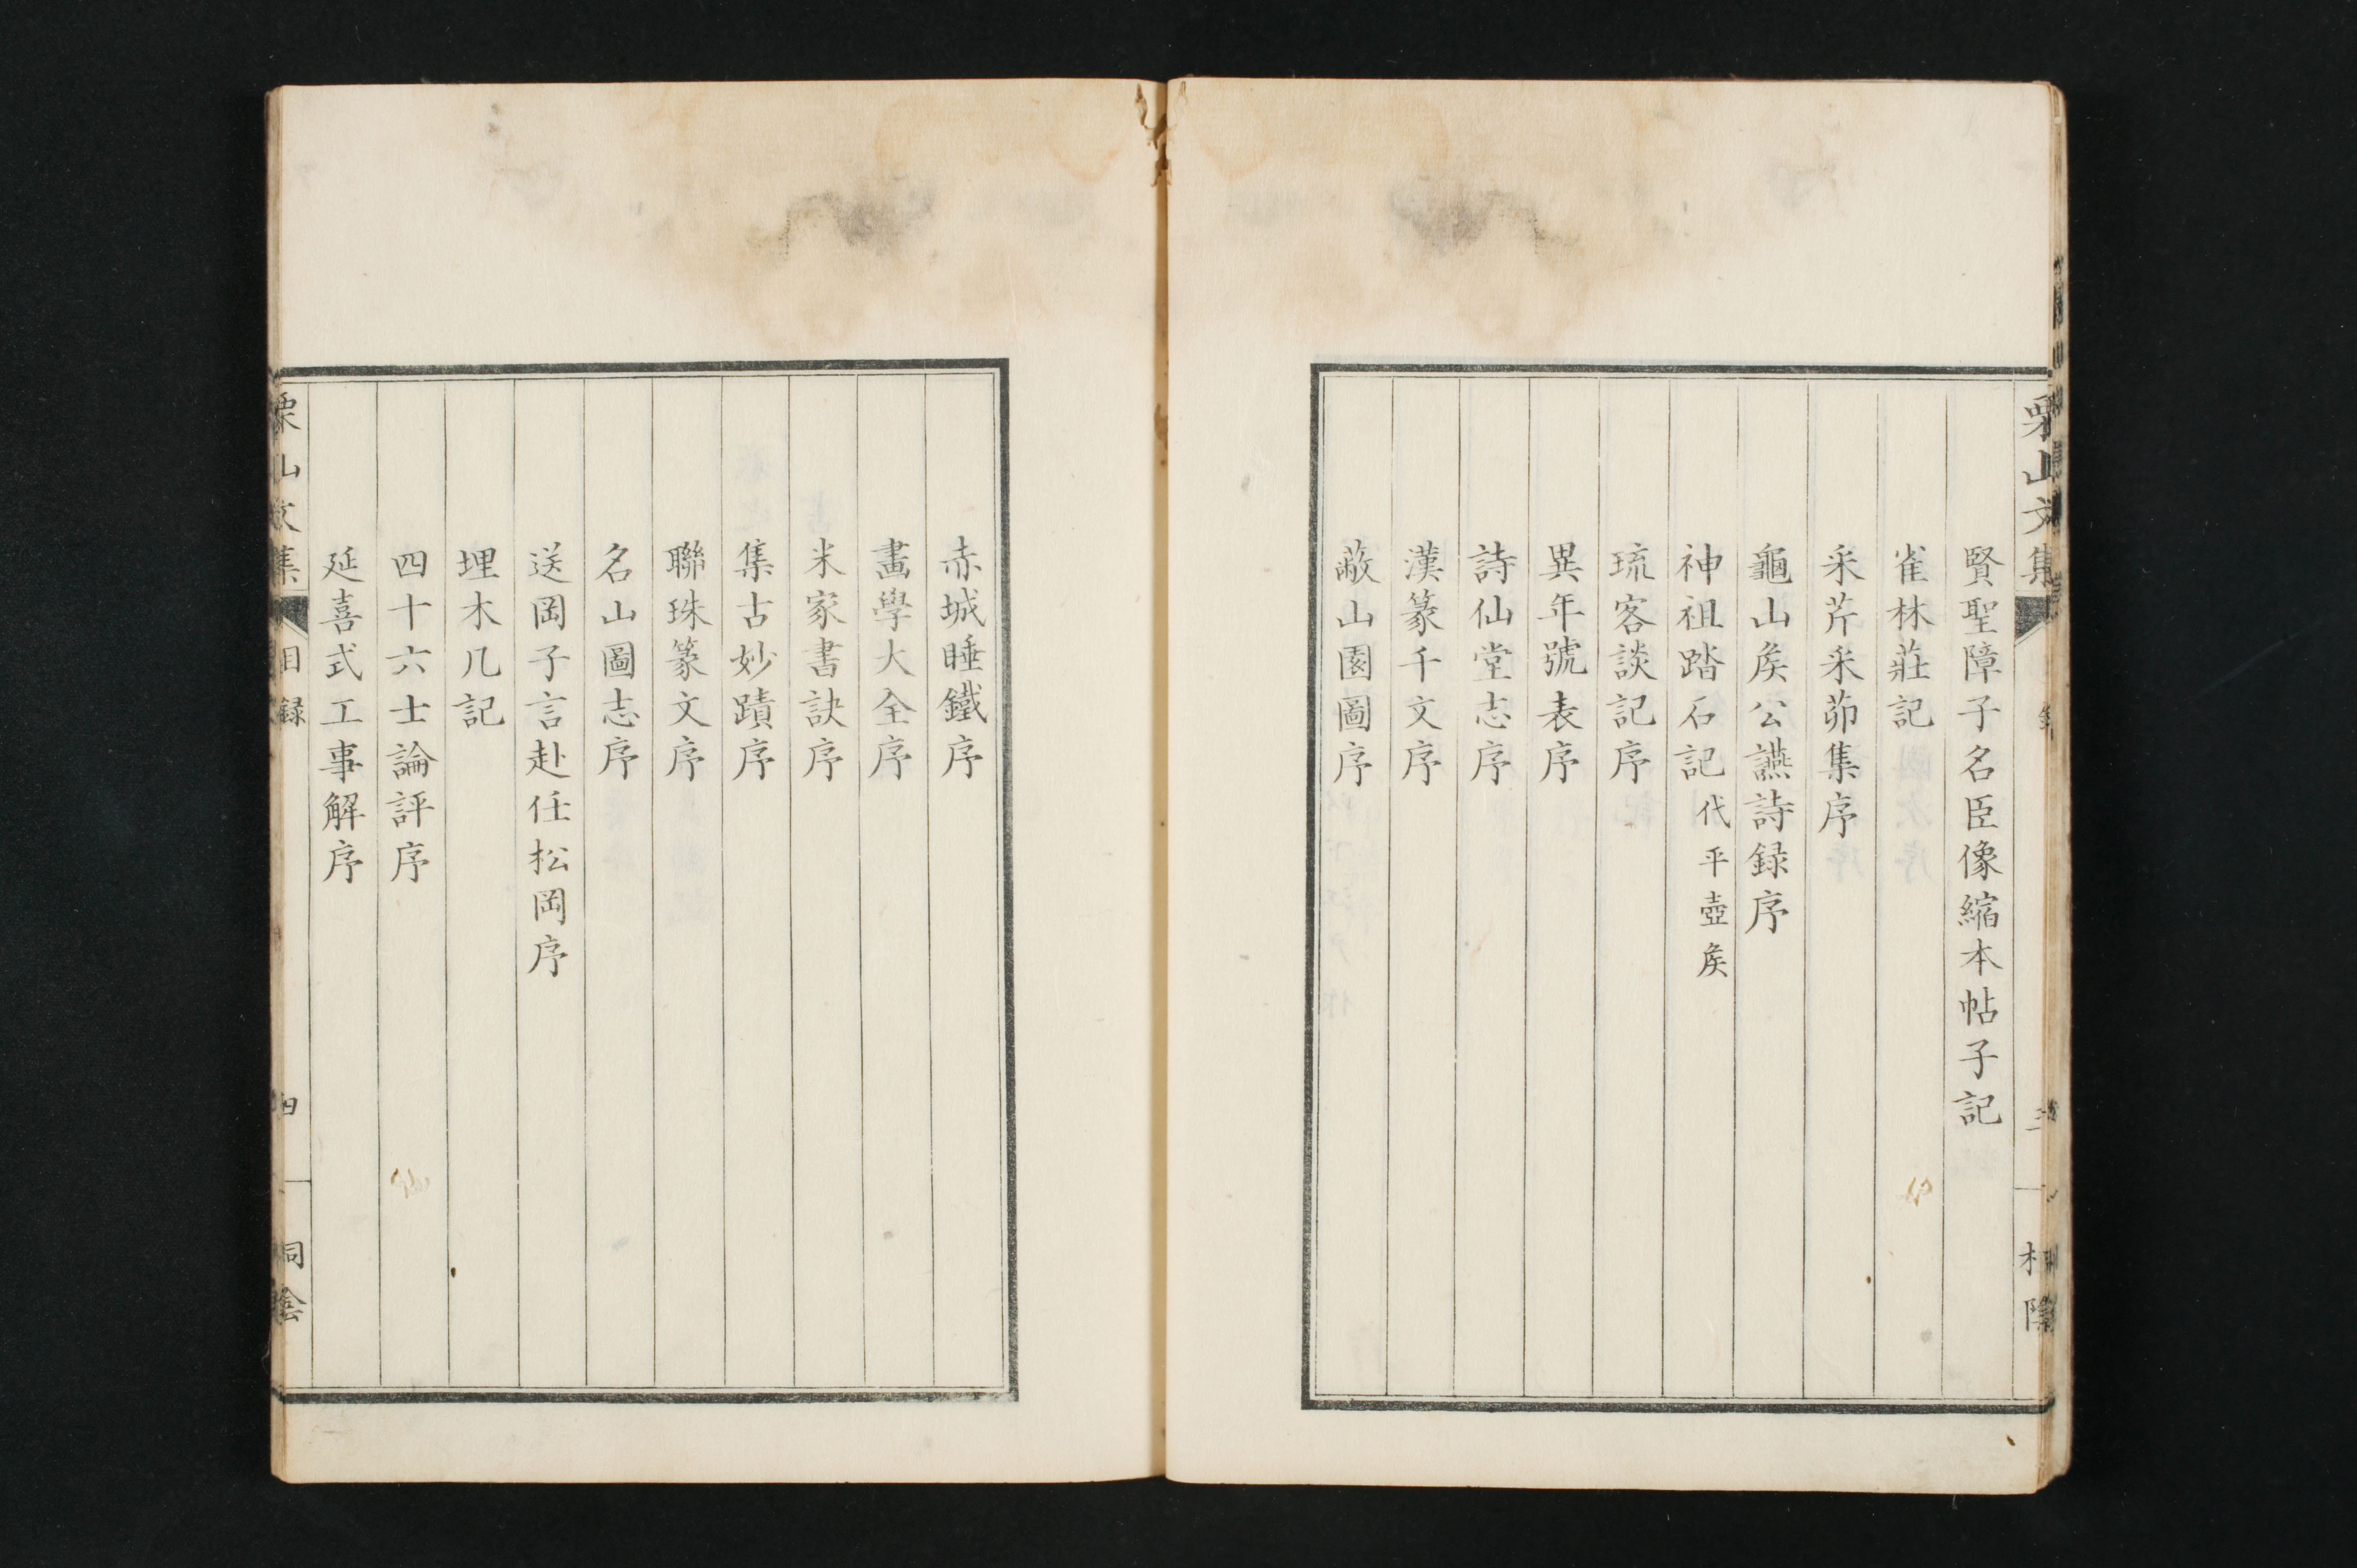 賢聖障子名臣像縮本帖子記
雀林莊記
采芹采茆集序
龜山矦公讌詩録序
神祖踏石記代平壺矦
琉客談記序
異年號表序
詩仙堂志序
漢篆千文序
蔽山園圖序
赤城睡鐵序
畫學大全序
米家書訣序
集古妙蹟序
聯珠篆文序
名山圖志序
送岡子言赴任松岡序
埋木几記
四十六士論評序
延喜式工事解序
栗山文集
目録
四
桐陰